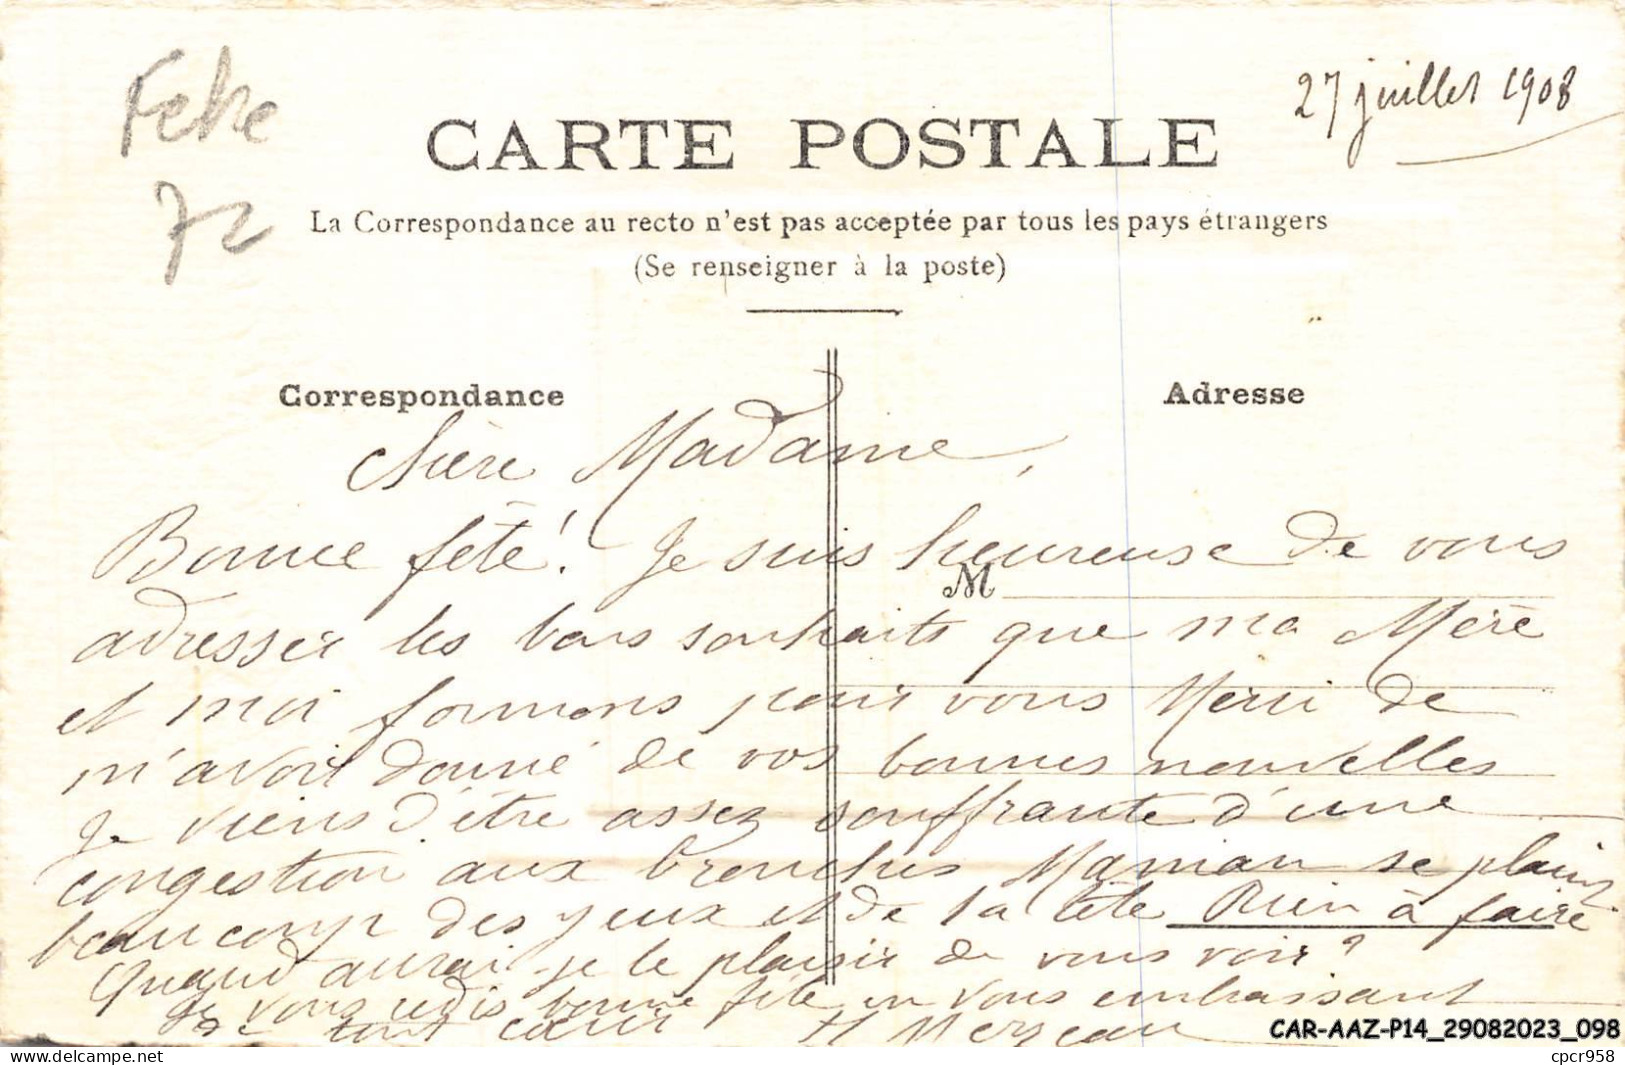 27 juillet 1908
72
CARTE POSTALE
La Correspondance au recto n'est pas acceptée par tous les pays étrangers
(Se renseigner à la poste)
Correspondance
Adresse
M
Chère Madame,
Bonne fête! Je suis heureuse de vous
adresser les bons souhaits que ma Mère
et moi formons pour vous Merci de
m'avoir donné de vos bonnes nouvelles
Je viens d'être assez souffrante d'une
congestion aux bronches Maman se plaint
beaucoup des yeux et de la tête Rien à faire
Quand aurai-je le plaisir de vous voir?
Je vous redis bonne fête en vous embrassant
de tout cœur
CAR-AAZ-P14_29082023_098
cpcr958